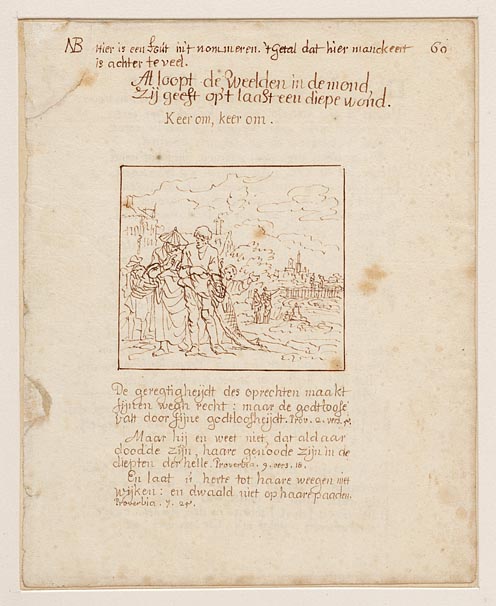 NB Hier is een fout in't nommeren. 't Getal dat hier manckeert 60
is achter te veel.
Al loopt de Weelden in de mond,
Zij geeft op't laast een diepe wond.
Keer om, keer om.
De geregtigheijdt des oprechten maakt
sijnen wegh recht: maar de godtloose
valt door sijne godtloosheijdt. Prov.
Maar hij en weet niet, dat aldaar
doodde zijn, haare genoode zijn in de
diepten der helle. Proverbia. 9. vers. 18.
En laat u herte tot haare weegen niet
wijken: en dwaald niet op haare paaden.
Proverbia. 7. 25.